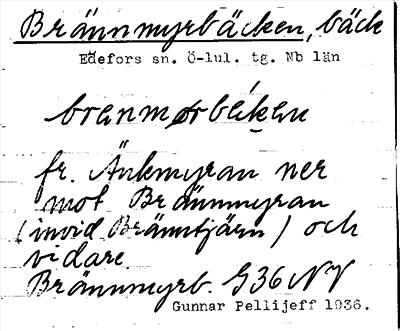 Brännmyrbäcken, bäck
Edefors sn. Ö-lul. tg. Nb län
branmørbékan
fr. Änkmyran ner
mot Brännmyran
(invid Bränntjärn) och
vidare
Brännmyrb. G36 NV
Gunnar Pellijeff 1936.